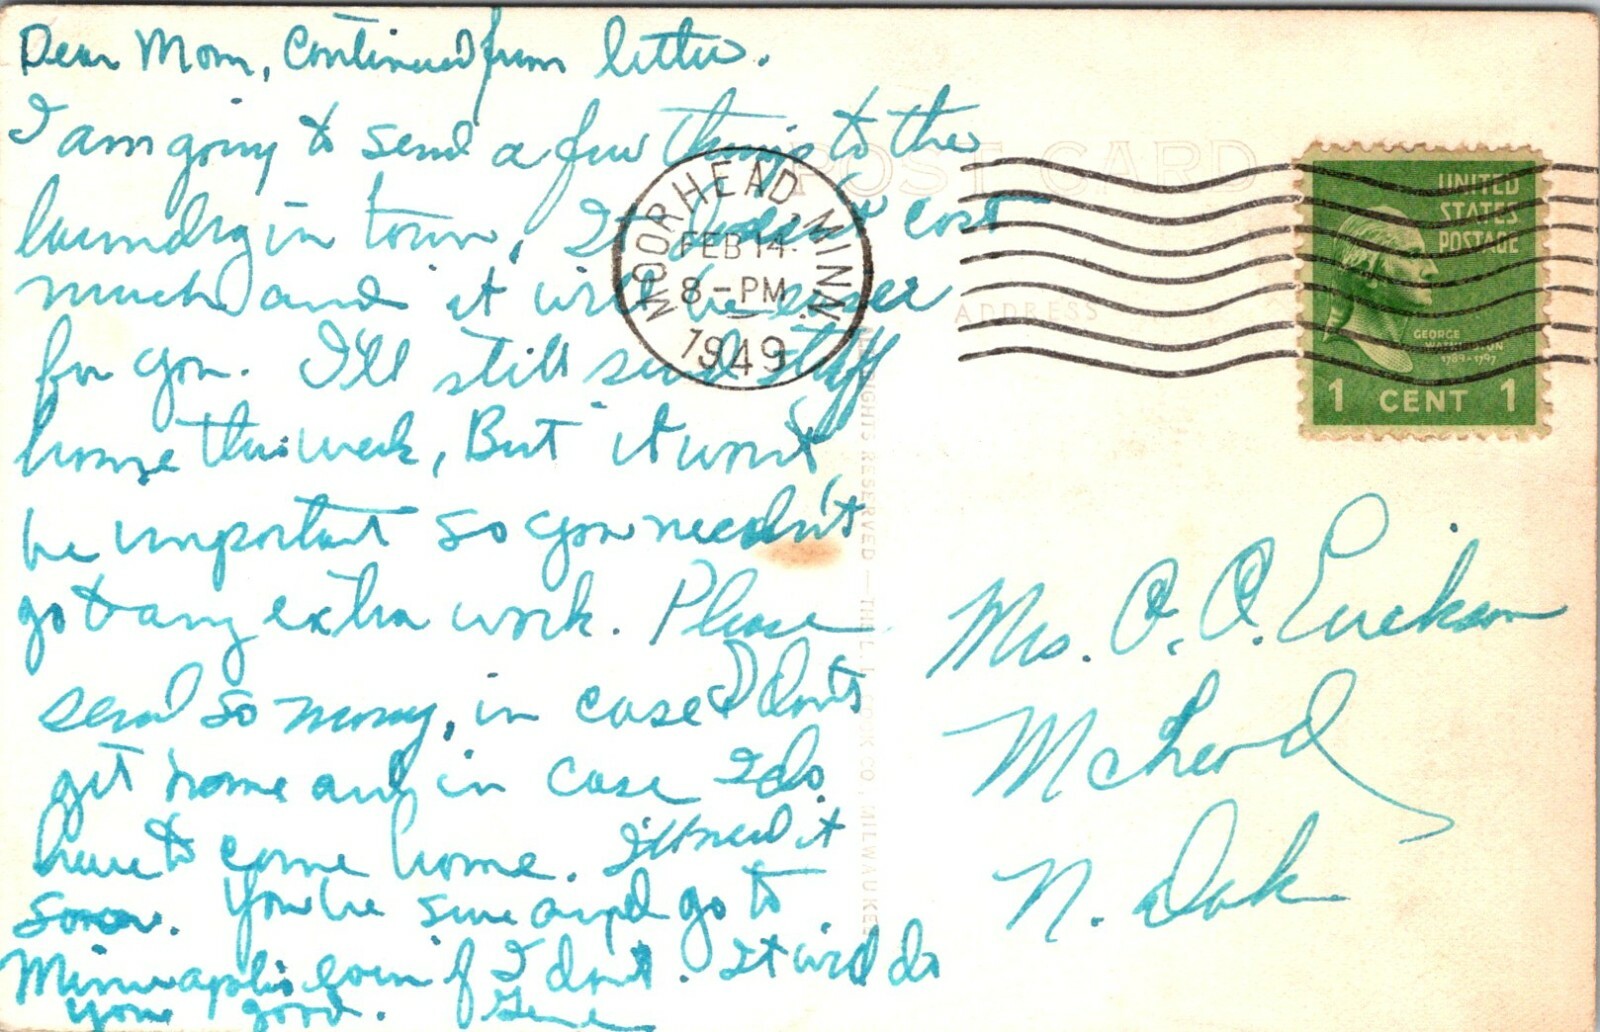 Dear Mom, Continued from letter.
I am going to send a few things to the
laundry in town, It doesn't cost
much and it will be easier
for you. I'll still send stuff
home this week, But it won't
be important so you needn't
go to any extra work. Please
send so money, in case I don't
get home and in case I do
have to come home. I'll need it
soon. You be sure and go to
Minneapolis even if I don't. It will do
you good. Gene
MOORHEAD, MINN.
FEB 14
8-PM
1949
POST CARD
ADDRESS
UNITED
STATES
POSTAGE
GEORGE
WASHINGTON
1789-1797
1 CENT 1
RIGHTS RESERVED — THE L. L. COOK CO., MILWAUKEE
Mrs. O. O. Erickson
McLeod
N. Dak